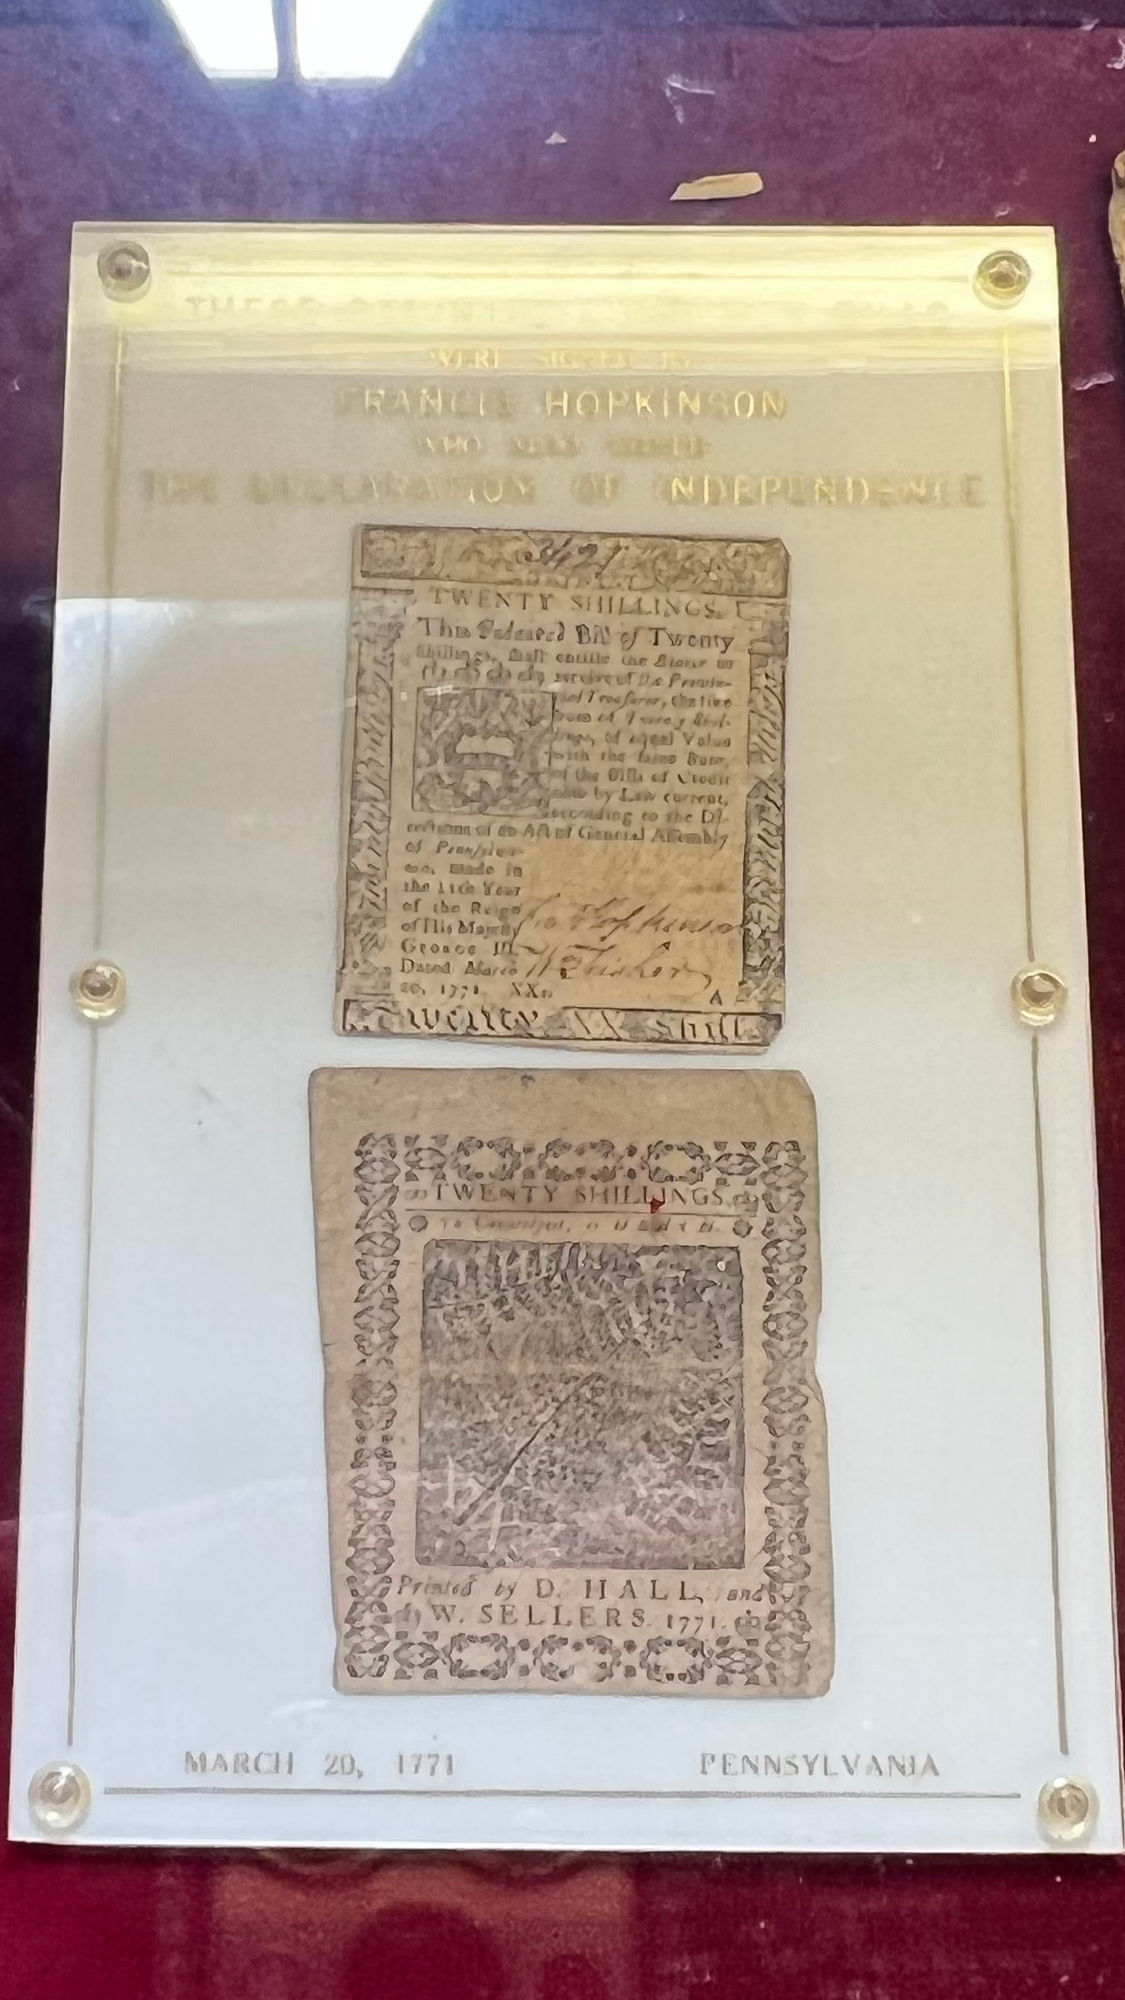 WERE SIGNED BY
FRANCIS HOPKINSON
WHO ALSO SIGNED
THE DECLARATION OF INDEPENDENCE
TWENTY SHILLINGS.
This Indented Bill of Twenty
Shillings, shall entitle the Bearer to
receive of the Provin-
cial Treasurer, the like
Sum of Twenty Shil-
lings, of equal Value
with the same Sum,
of the Bills of Credit
now by Law current,
according to the Di-
rections of an Act of General Assembly
of Pennsylva-
nia, made in
the 11th Year
of the Reign
of His Majesty
George III.
Dated March
20, 1771. XXs.
Hopkinson
Fisher
A
Twenty XX Shill
TWENTY SHILLINGS.
To Counterfeit, is DEATH.
Printed by D. HALL, and
W. SELLERS. 1771.
MARCH 20, 1771 PENNSYLVANIA